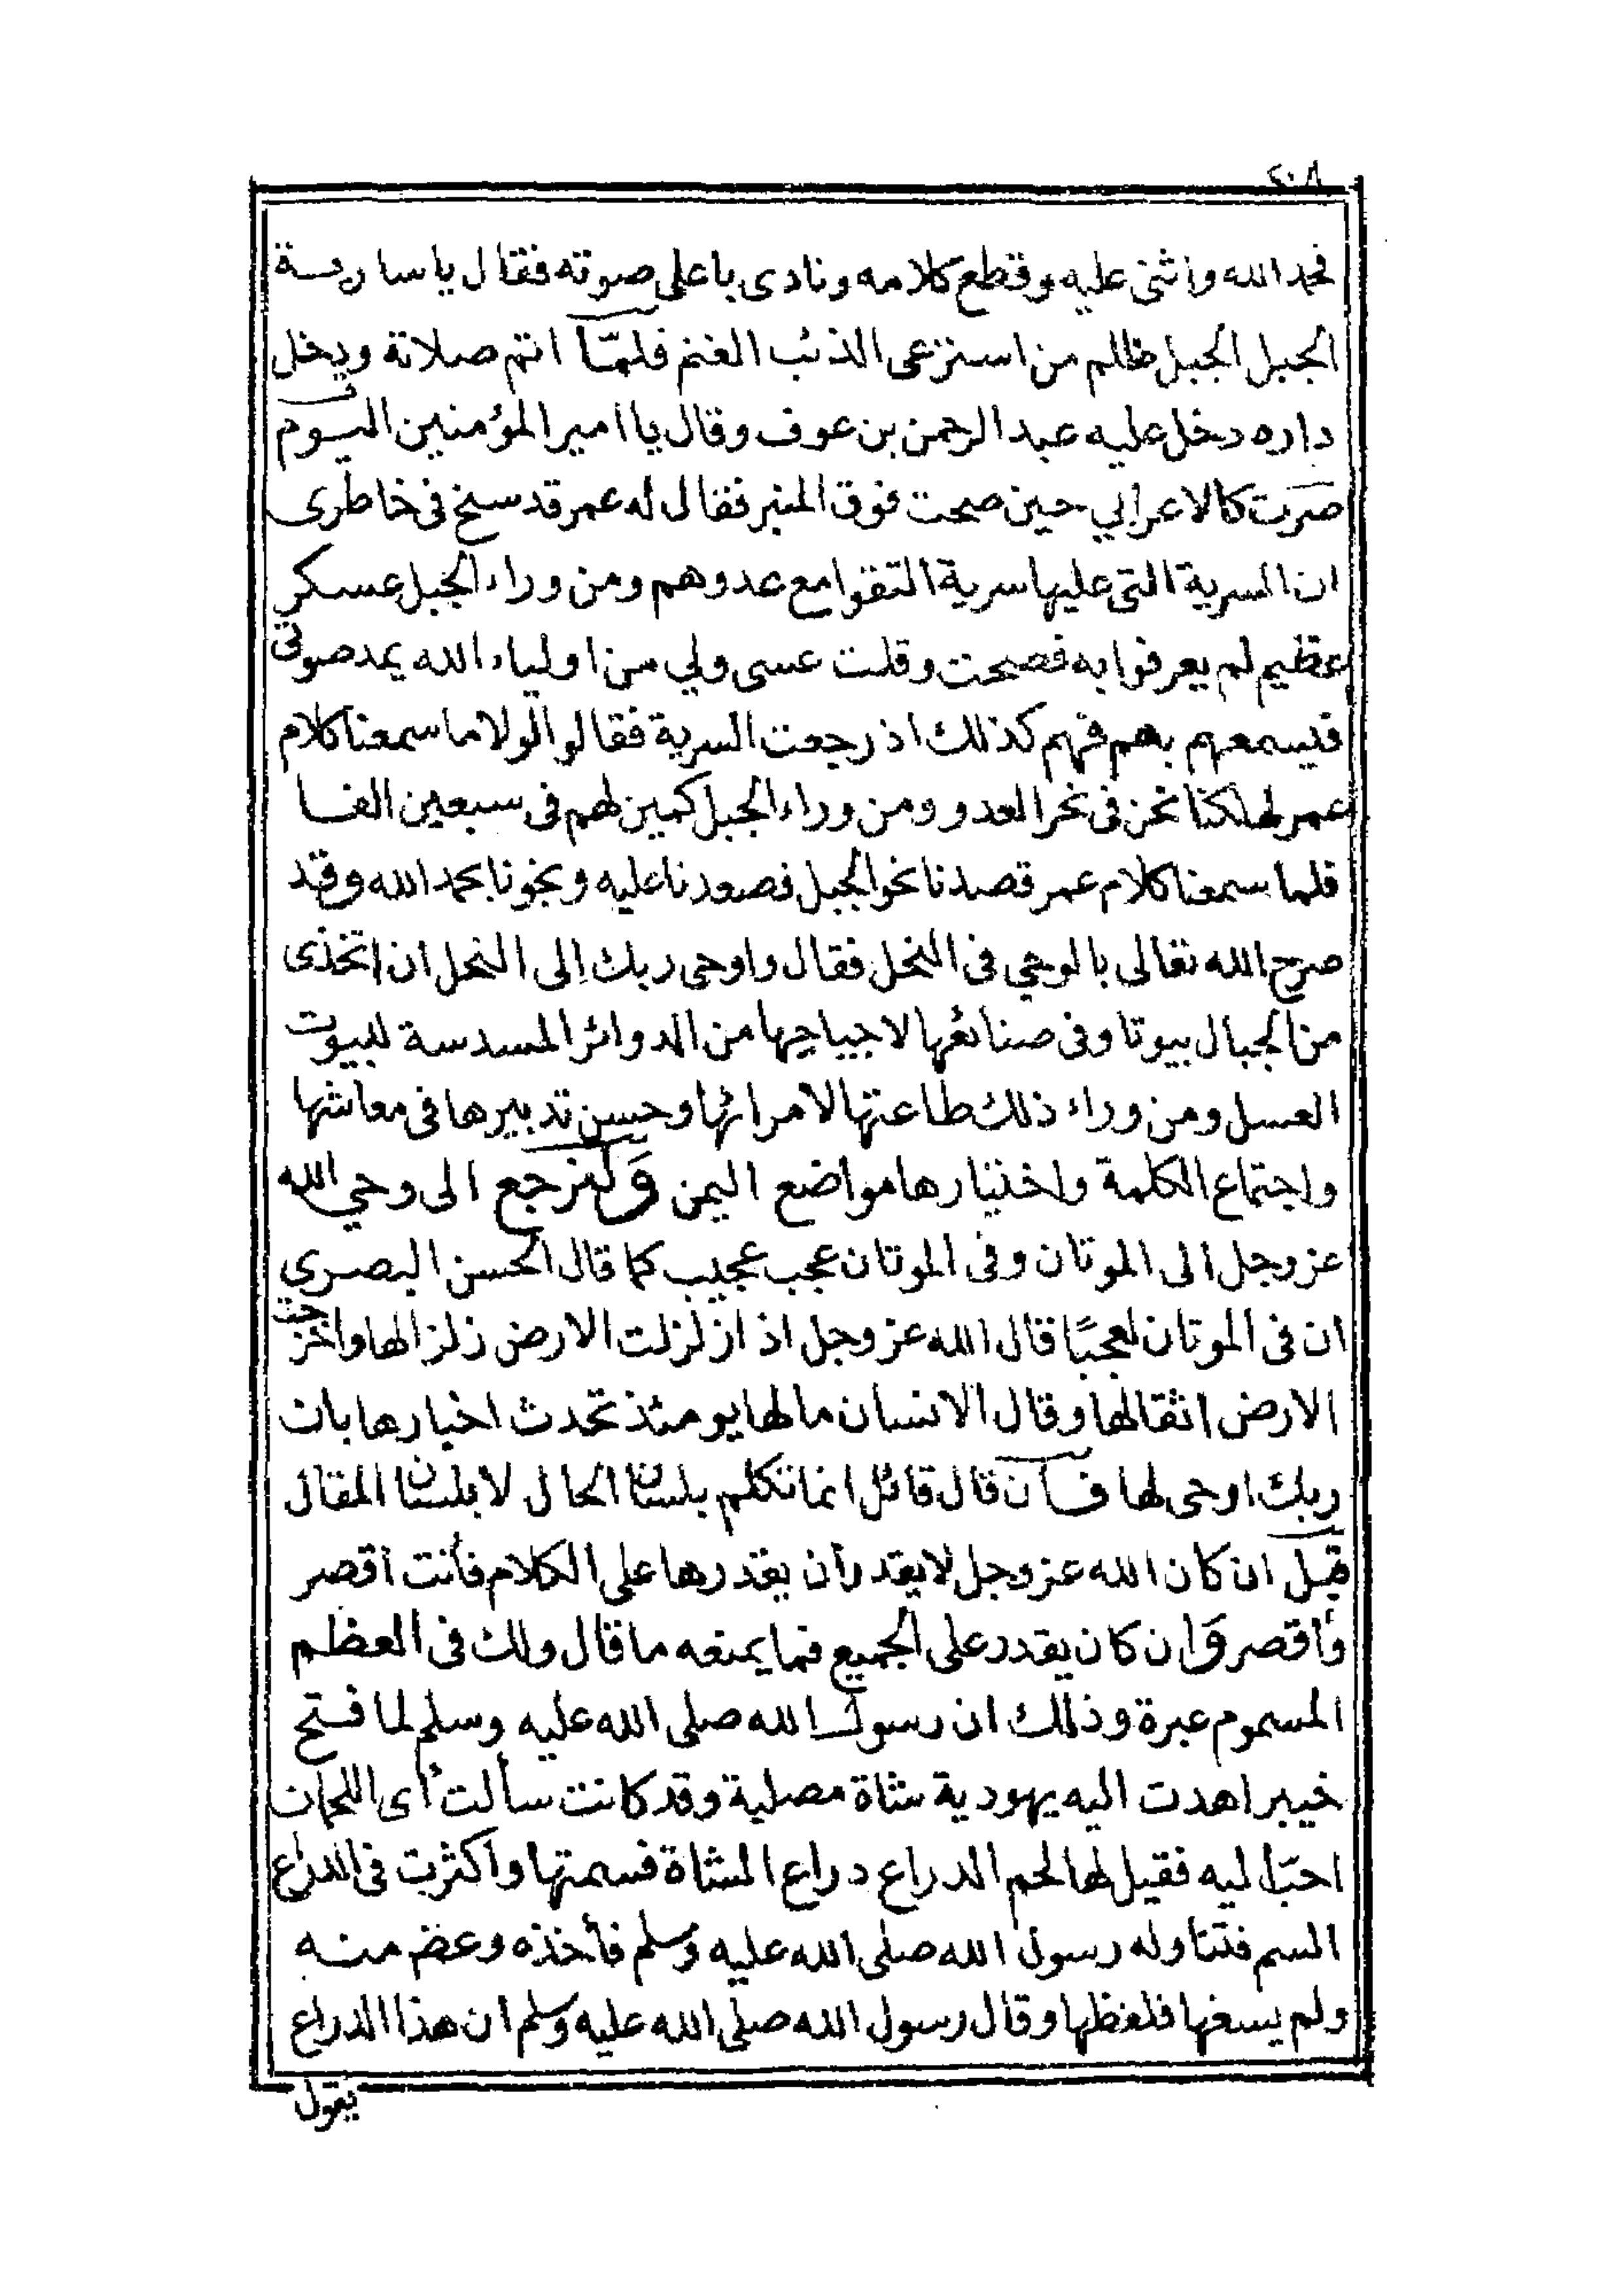 ٢٠٨
فحمد الله واثنى عليه وقطع كلامه ونادى باعلى صوته فقال يا سارية
الجبل الجبل ظلم من استرعى الذئب الغنم فلمّا اتم صلاتة ودخل
داره دخل عليه عبد الرحمن بن عوف وقال يا امير المؤمنين اليوم
صرت كالاعرابي حين صحت فوق المنبر فقال له عمر قد سنح فى خاطرى
ان السرية التى عليها سرية التقوا مع عدوهم ومن وراء الجبل عسكر
عظيم لم يعرفوا به فصحت وقلت عسى ولي من اولياء الله يمد صوتى
فيسمعهم بهم فهم كذلك اذ رجعت السرية فقالوا لولا ما سمعنا كلام
عمر لهلكنا نحن فى نحر العدو ومن وراء الجبل كمين لهم فى سبعين الفا
فلما سمعنا كلام عمر قصدنا نحو الجبل فصعدنا عليه ونجونا بحمد الله وقد
صرح الله تعالى بالوحي فى النحل فقال واوحى ربك إلى النحل ان اتخذى
من الجبال بيوتا وفى صنائعها لاجباحها من الدوائر المسدسة لبيوت
العسل ومن وراء ذلك طاعتها لامرائها وحسن تدبيرها فى معاشها
واجتماع الكلمة واختيارها مواضع اليمن وَلنرجع الى وحي الله
عز وجل الى الموتان وفى الموتان عجب عجيب كما قال الحسن البصري
ان فى الموتان لعجبًا قال الله عز وجل اذا زلزلت الارض زلزالها واخرجت
الارض اثقالها وقال الانسان ما لها يومئذ تحدث اخبارها بان
ربك اوحى لها فان قال قائل انما تكلم بلسان الحال لا بلسان المقال
قيل ان كان الله عز وجل لا يقدر أن يقدرها على الكلام فأنت أقصر
وأقصر وَان كان يقدر على الجميع فما يمنعه ما قال ولك فى العظم
المسموم عبرة وذلك ان رسول الله صلى الله عليه وسلم لما فتح
خيبر اهدت اليه يهودية شاة مصلية وقد كانت سألت أى اللحمان
احبّ اليه فقيل لها لحم الدراع دراع الشاة فسمتها واكثرت فى الدراع
السم فتناوله رسول الله صلى الله عليه وسلم فأخذه وعض منه
ولم يسغها فلفظها وقال رسول الله صلى الله عليه وسلم ان هذا الدراع
يقول